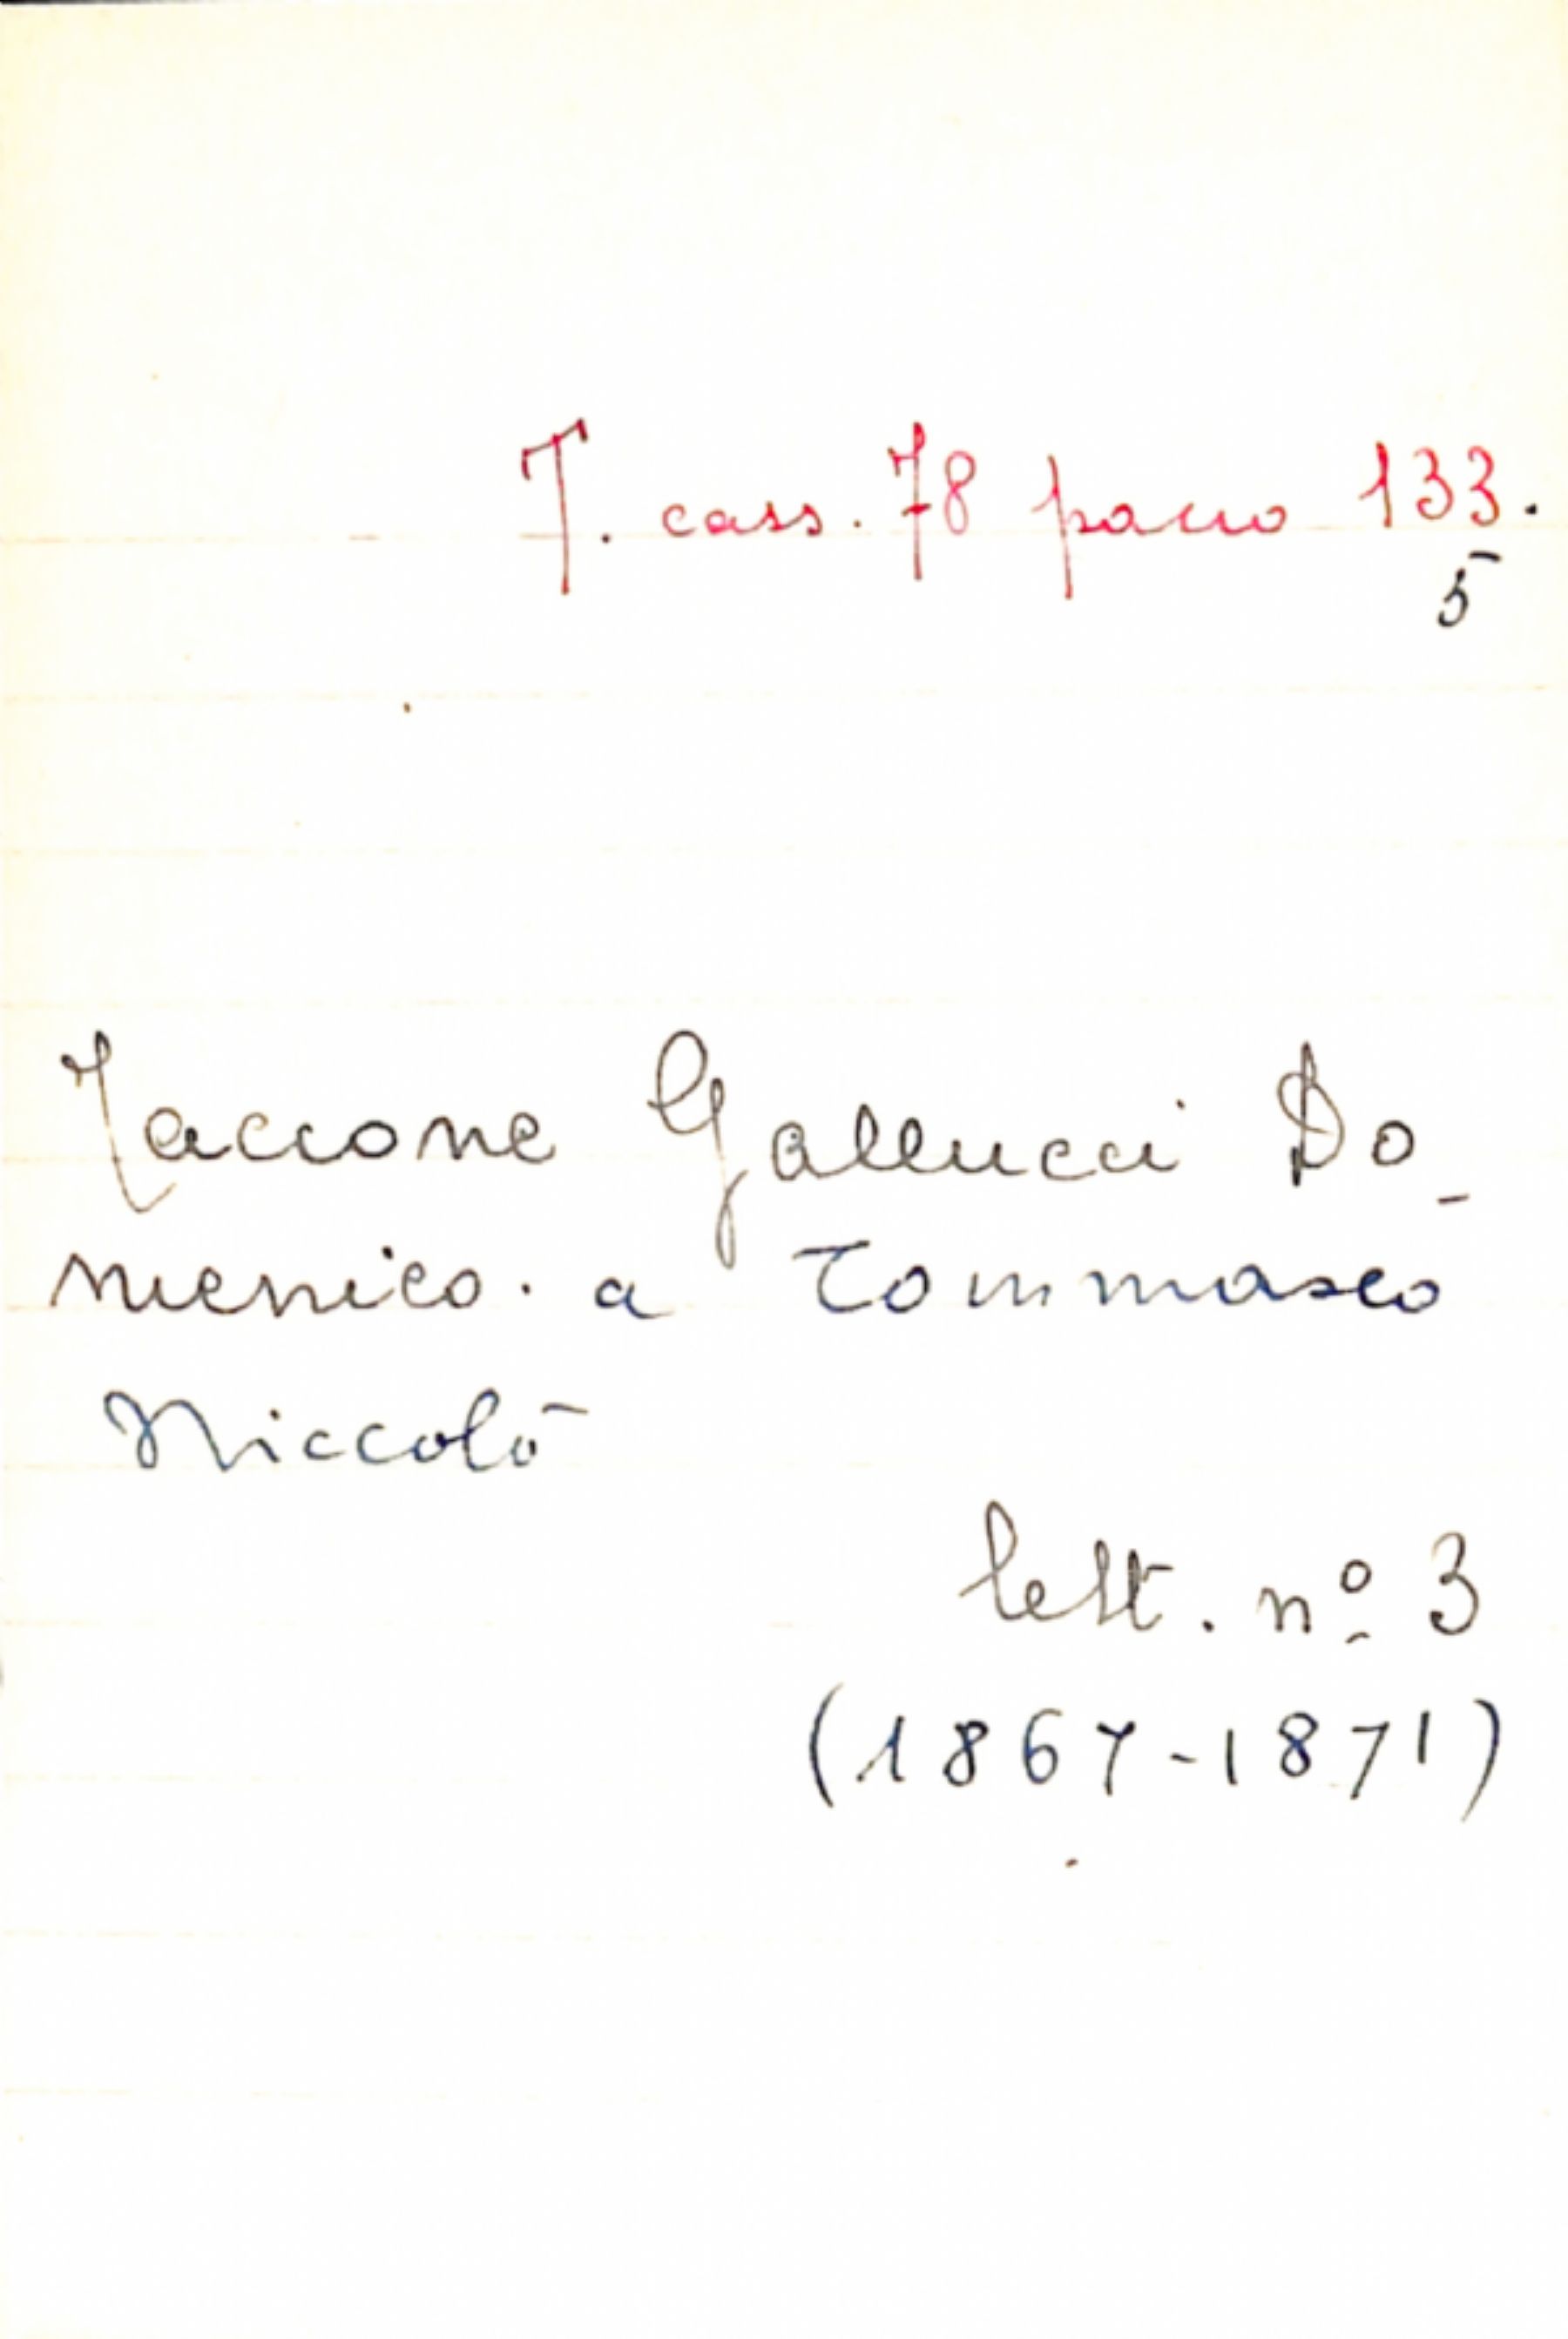 T. cass. 78 pacco 133.
5
Taccone Gallucci Do-
menico. a Tommaseo
Niccolò
lett. nº 3
(1867-1871)